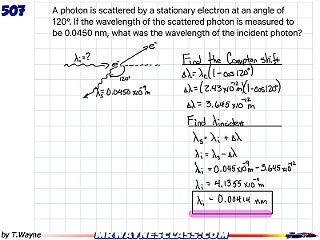 507
A photon is scattered by a stationary electron at an angle of
120º. If the wavelength of the scattered photon is measured to
be 0.0450 nm, what was the wavelength of the incident photon?
λi=?
e⁻
e⁻
120°
λs=0.0450x10⁻⁹m
Find the Compton shift
Δλ=λc(1-cos120°)
Δλ=(2.43x10⁻¹²m)(1-cos120°)
Δλ = 3.645x10⁻¹²m
Find λincident
λs=λi+Δλ
λi=λs-Δλ
λi=0.045x10⁻⁹m-3.645x10⁻¹²
λi=4.1355x10⁻¹¹m
λi=0.00414 nm
by T.Wayne
MRWAYNESCLASS.COM